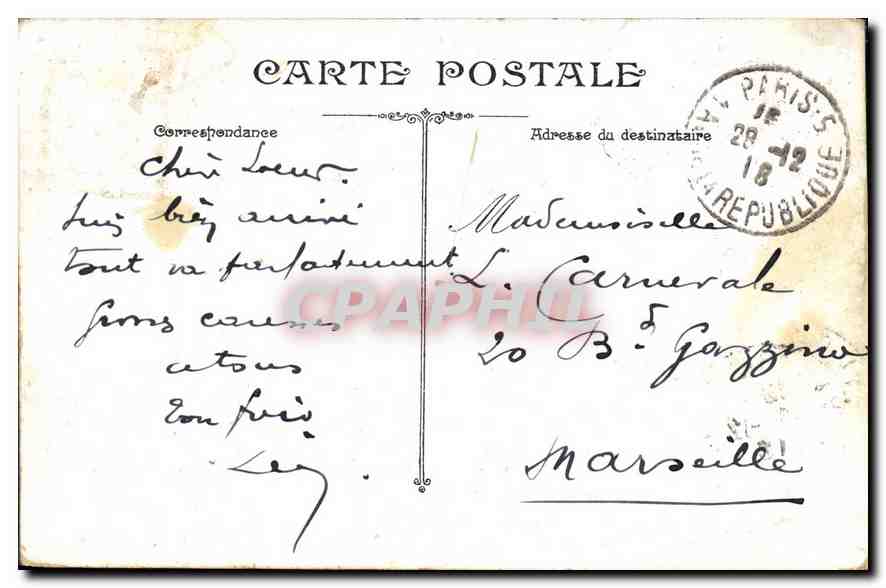 CARTE POSTALE
Correspondance
Adresse du destinataire
PARIS-5
AV. DE LA REPUBLIQUE
18
28 -12
18
Chère Soeur.
Suis bien arrivé
tout va parfaitement
Grosses caresses
a tous
Ton frère
Mademoiselle
L. Carnevale
20 Bd Gazzino
Marseille
CPAPHIL